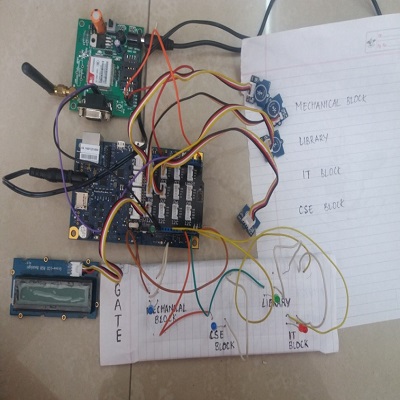 MECHANICAL BLOCK
LIBRARY
IT BLOCK
CSE BLOCK
GATE
MECHANICAL
BLOCK
CSE
BLOCK
LIBRARY
IT
BLOCK